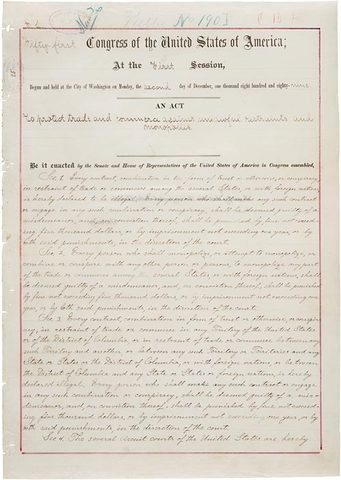 Public No 190
Fifty-first Congress of the United States of America;
At the First Session,
Begun and held at the City of Washington on Monday, the second day of December, one thousand eight hundred and eighty-nine.
AN ACT
To protect trade and commerce against unlawful restraints and
monopolies.
Be it enacted by the Senate and House of Representatives of the United States of America in Congress assembled,
Sec. 1. Every contract, combination in the form of trust or otherwise, or conspiracy,
in restraint of trade or commerce among the several States, or with foreign nations,
is hereby declared to be illegal. Every person who shall make any such contract
or engage in any such combination or conspiracy, shall be deemed guilty of a
misdemeanor, and, on conviction thereof, shall be punished by fine not exceed-
ing five thousand dollars, or by imprisonment not exceeding one year, or by
both said punishments, in the discretion of the court.
Sec. 2. Every person who shall monopolize, or attempt to monopolize, or
combine or conspire with any other person or persons, to monopolize any part
of the trade or commerce among the several States, or with foreign nations, shall
be deemed guilty of a misdemeanor, and, on conviction thereof, shall be punished
by fine not exceeding five thousand dollars, or by imprisonment not exceeding one
year, or by both said punishments, in the discretion of the court.
Sec. 3. Every contract, combination in form of trust or otherwise, or conspir-
acy, in restraint of trade or commerce in any Territory of the United States
or of the District of Columbia, or in restraint of trade or commerce between any
such Territory and another, or between any such Territory or Territories and any
State or States or the District of Columbia, or with foreign nations, or between
the District of Columbia and any State or States or foreign nations, is hereby
declared illegal. Every person who shall make any such contract or engage
in any such combination or conspiracy, shall be deemed guilty of a mis-
demeanor, and, on conviction thereof, shall be punished by fine not exceed-
ing five thousand dollars, or by imprisonment not exceeding one year, or by
both said punishments, in the discretion of the court.
Sec. 4. The several circuit courts of the United States are hereby